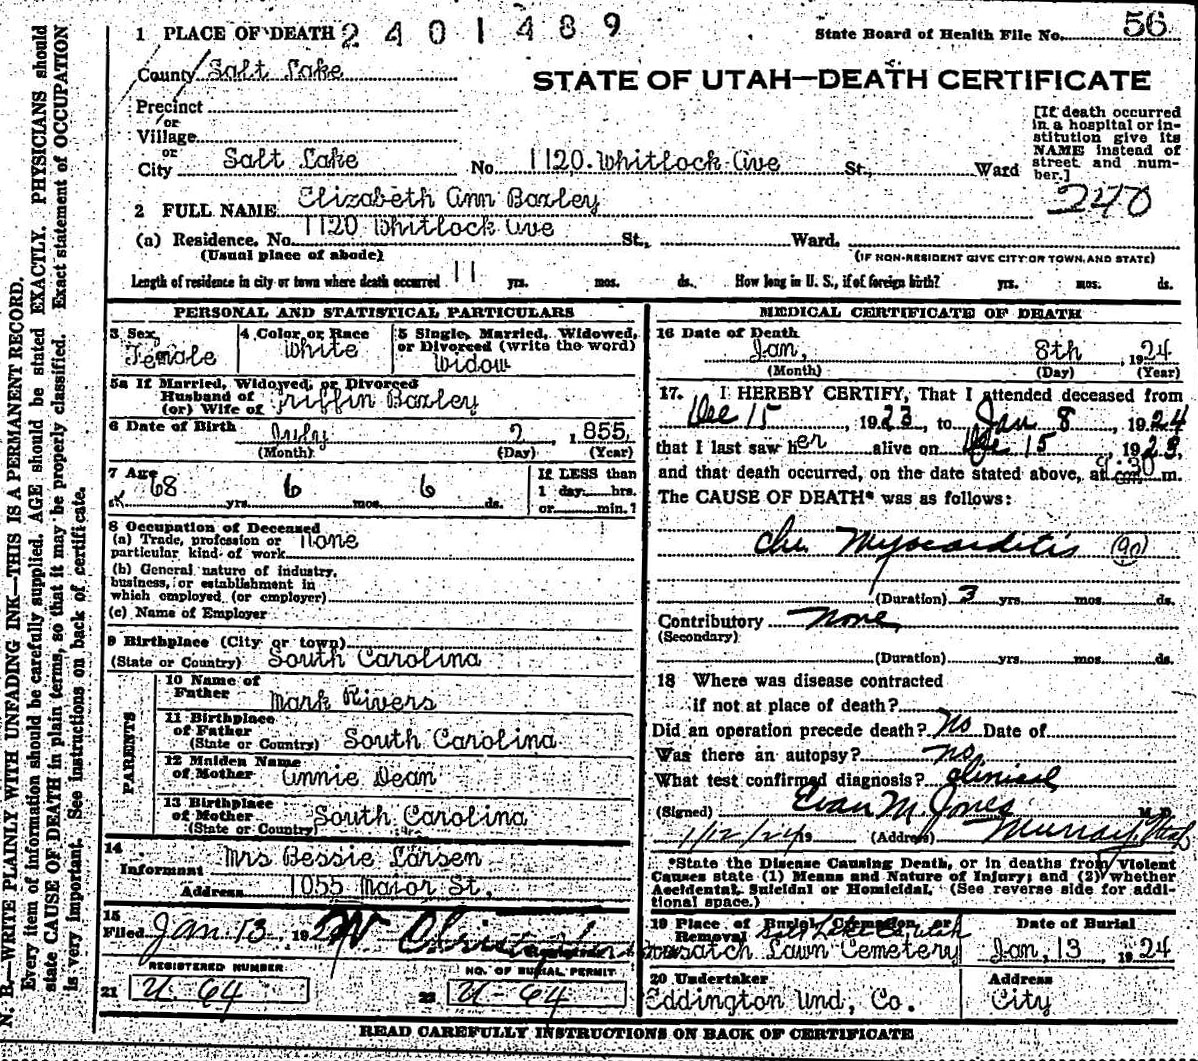 1 PLACE OF DEATH 2401489
State Board of Health File No. 56
County Salt Lake
STATE OF UTAH—DEATH CERTIFICATE
Precinct
or
Village
or
City Salt Lake No. 1120 Whitlock Ave St., Ward
[If death occurred
in a hospital or in-
stitution give its
NAME instead of
street and num-
ber.]
240
2 FULL NAME Elizabeth Ann Baxley
(a) Residence. No. 1120 Whitlock Ave St., Ward.
(Usual place of abode) (IF NON-RESIDENT GIVE CITY OR TOWN, AND STATE)
Length of residence in city or town where death occurred 11 yrs. mos. ds. How long in U. S., if of foreign birth? yrs. mos. ds.
PERSONAL AND STATISTICAL PARTICULARS
3 Sex Female
4 Color or Race White
5 Single, Married, Widowed,
or Divorced (write the word)
Widow
5a If Married, Widowed, or Divorced
Husband of
(or) Wife of Griffin Baxley
6 Date of Birth July 2, 1855
(Month) (Day) (Year)
7 Age 68 yrs. 6 mos. 6 ds.
If LESS than
1 day hrs.
or min.?
8 Occupation of Deceased
(a) Trade, profession or
particular kind of work none
(b) General nature of industry,
business, or establishment in
which employed (or employer)
(c) Name of Employer
9 Birthplace (City or town)
(State or Country) South Carolina
PARENTS
10 Name of
Father Mark Rivers
11 Birthplace
of Father
(State or Country) South Carolina
12 Maiden Name
of Mother Annie Dean
13 Birthplace
of Mother
(State or Country) South Carolina
14
Informant Mrs Bessie Larsen
Address 1055 Major St.
15
Filed Jan 13 192
REGISTERED NUMBER
21 U-64
NO. OF BURIAL PERMIT
22 U-64
MEDICAL CERTIFICATE OF DEATH
16 Date of Death
Jan, 8th 1924
(Month) (Day) (Year)
17. I HEREBY CERTIFY, That I attended deceased from
Dec 15, 1923, to Jan 8, 1924
that I last saw her alive on Dec 15, 1923,
and that death occurred, on the date stated above, at m.
The CAUSE OF DEATH* was as follows:
Chr. Myocarditis (90)
(Duration) 3 yrs. mos. ds.
Contributory None
(Secondary)
(Duration) yrs. mos. ds.
18 Where was disease contracted
if not at place of death?
Did an operation precede death? No Date of
Was there an autopsy? no
What test confirmed diagnosis? clinical
(Signed) Evan M. Jones M. D.
1/12/24 19 (Address) Murray, Utah
*State the Disease Causing Death, or in deaths from Violent
Causes state (1) Means and Nature of Injury; and (2) whether
Accidental, Suicidal or Homicidal. (See reverse side for addi-
tional space.)
19 Place of Burial, Cremation, or
Removal
Wasatch Lawn Cemetery
Date of Burial
Jan, 13 1924
20 Undertaker
Eddington Und, Co.
Address
City
READ CAREFULLY INSTRUCTIONS ON BACK OF CERTIFICATE
N. B.—WRITE PLAINLY WITH UNFADING INK—THIS IS A PERMANENT RECORD.
Every item of information should be carefully supplied. AGE should be stated EXACTLY. PHYSICIANS should
state CAUSE OF DEATH in plain terms, so that it may be properly classified. Exact statement of OCCUPATION
is very important. See instructions on back of certificate.